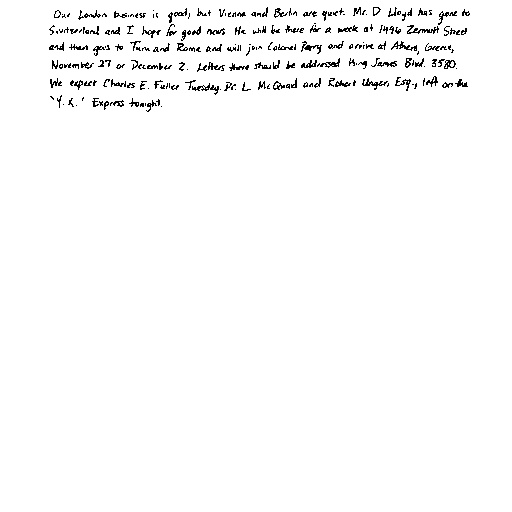 Our London business is good, but Vienna and Berlin are quiet. Mr. D. Lloyd has gone to
Switzerland and I hope for good news. He will be there for a week at 1496 Zermott Street
and then goes to Turin and Rome and will join Colonel Parry and arrive at Athens, Greece,
November 27 or December 2. Letters there should be addressed King James Blvd. 3580.
We expect Charles E. Fuller Tuesday. Dr. L McQuaid and Robert Unger, Esq., left on the
"Y.X." Express tonight.